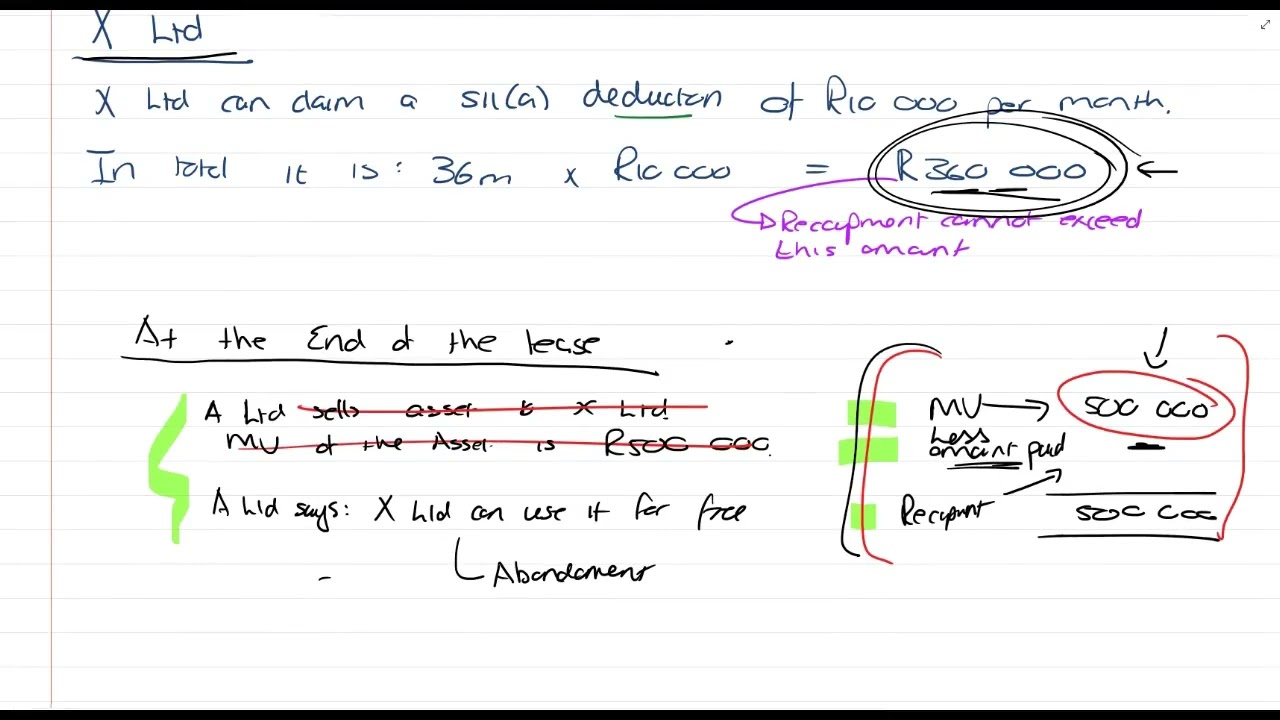 X Ltd
X Ltd can claim a s11(a) deduction of R10 000 per month.
In total it is: 36m x R10 000 = R360 000
Recoupment cannot exceed
this amount
At the End of the lease
A Ltd sells asset to X Ltd
MV of the Asset is R500 000.
A Ltd says: X Ltd can use it for free
Abandoment
MV 500 000
Less
amount paid —
Recoupment 500 000